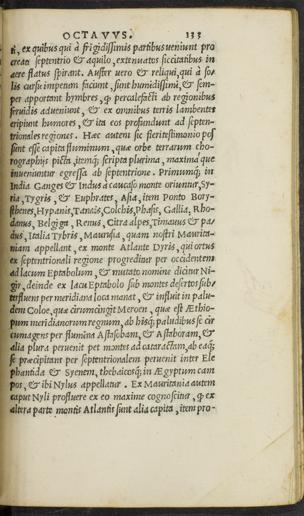 OCTAVVS. 133
ti, ex quibus qui à frigidissimis partibus ueniunt pro
creati septentrio & aquilo, extenuatos siccitatibus in
aere flatus spirant. Auster uero & reliqui, qui à so/
lis cursu impetum faciunt, sunt humidissimi, & sem-
per apportant hymbres, q percalefacti ab regionibus
feruidis adueniunt, & ex omnibus terris lambentes
eripiunt humores, & ita eos profundunt ad septen-
trionales regiones. Hæc autem sic fieri testimonio pos
sunt esse capita fluminum, quæ orbe terrarum cho-
rographijs picta, itemq; scripta plurima, maximaque
inueniuntur egressa ab septentrione. Primumq; in
India Ganges & Indus à caucaso monte oriuntur, Sy-
ria, Tygris, & Euphrates, Asia, item Ponto Bory-
sthenes, Hypanis, Tanais, Colchis, Phasis, Gallia, Rho-
danus, Belgiga, Renus, Citra alpes, Timauus & pa-
dus, Italia Tybris, Maurusia, quam nostri Maurita-
niam appellant, ex monte Atlante Dyris, qui ortus
ex septentrionali regione progreditur per occidentem
ad lacum Eptabolum, & mutato nomine dicitur Ni-
gir, deinde ex lacu Eptabolo sub montes desertos sub/
terfluens per meridiana loca manat, & influit in palu-
dem Coloe, quæ circumcingit Meroen, quæ est Æthio-
pum meridianorum regnum, ab hisq; paludibus se cir
cumagens per flumina Astasobam, & Astaboram, &
alia plura peruenit per montes ad cataractam, ab eaq;
se præcipitans per septentrionalem peruenit inter Ele
phantida & Syenem, thebaicosq; in Ægyptum cam
pos, & ibi Nylus appellatur. Ex Mauritania autem
caput Nyli profluere ex eo maxime cognoscitur, q ex
altera parte montis Atlantis sunt alia capita, item pro-